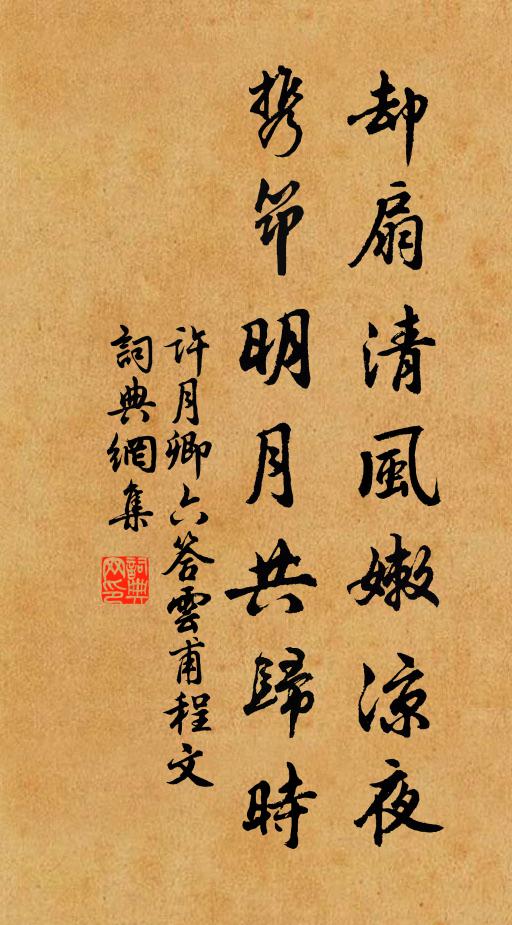 却扇清風嫩涼夜
携笻明月共歸時
許月卿六答雲甫程文
詞典網集
詞典网印